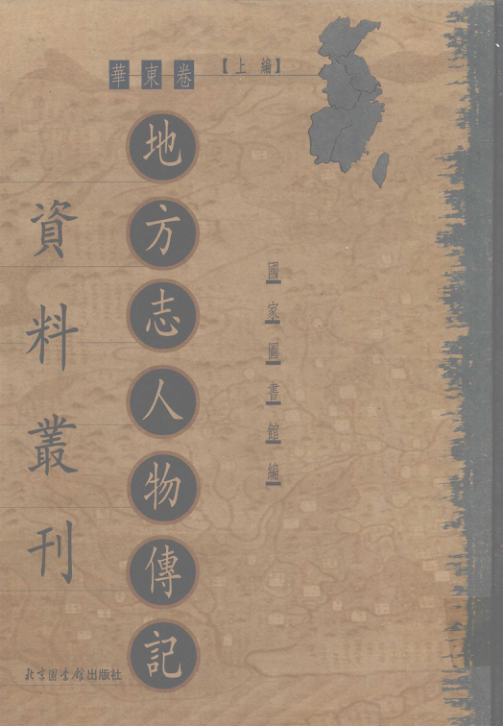 華東卷
【上編】
地方志人物傳記
資料叢刊
國家圖書館編
北京图书馆出版社